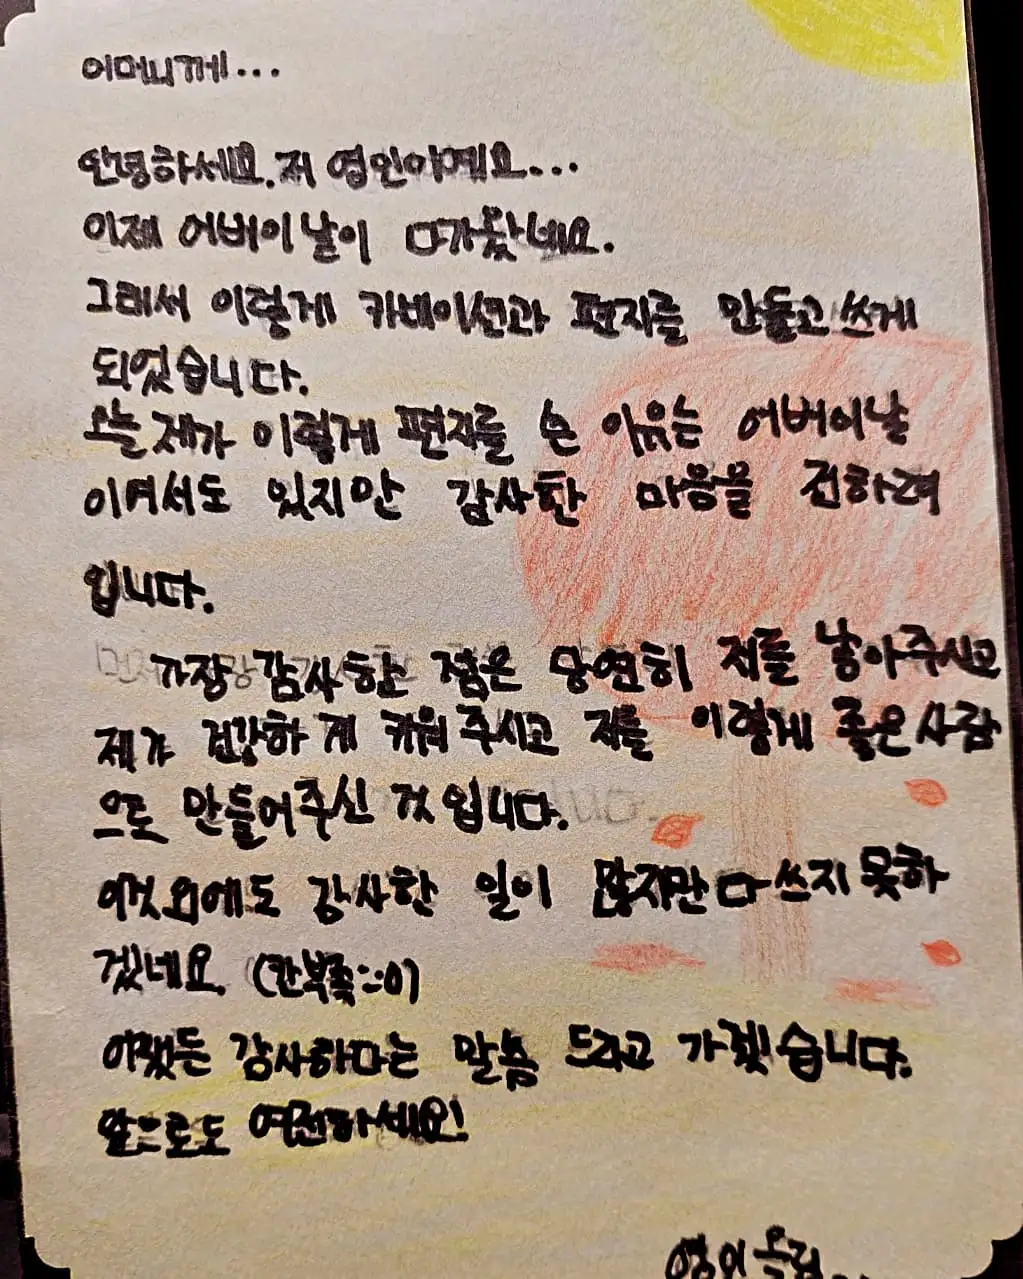 어머니께...
안녕하세요. 저 영인이예요...
이제 어버이날이 다가왔네요.
그래서 이렇게 카네이션과 편지를 만들고 쓰게
되었습니다.
오늘 제가 이렇게 편지를 쓴 이유는 어버이날
이여서도 있지만 감사한 마음을 전하려
입니다.
가장 감사한 점은 당연히 저를 낳아주시고
제가 건강하게 키워주시고 저를 이렇게 좋은사람
으로 만들어주신 것입니다.
이것외에도 감사한 일이 많지만 다쓰지못하
겠네요. (칸부족::0)
어쨌든 감사하다는 말씀 드리고 가겠습니다.
앞으로도 여전하세요!
영인 올림